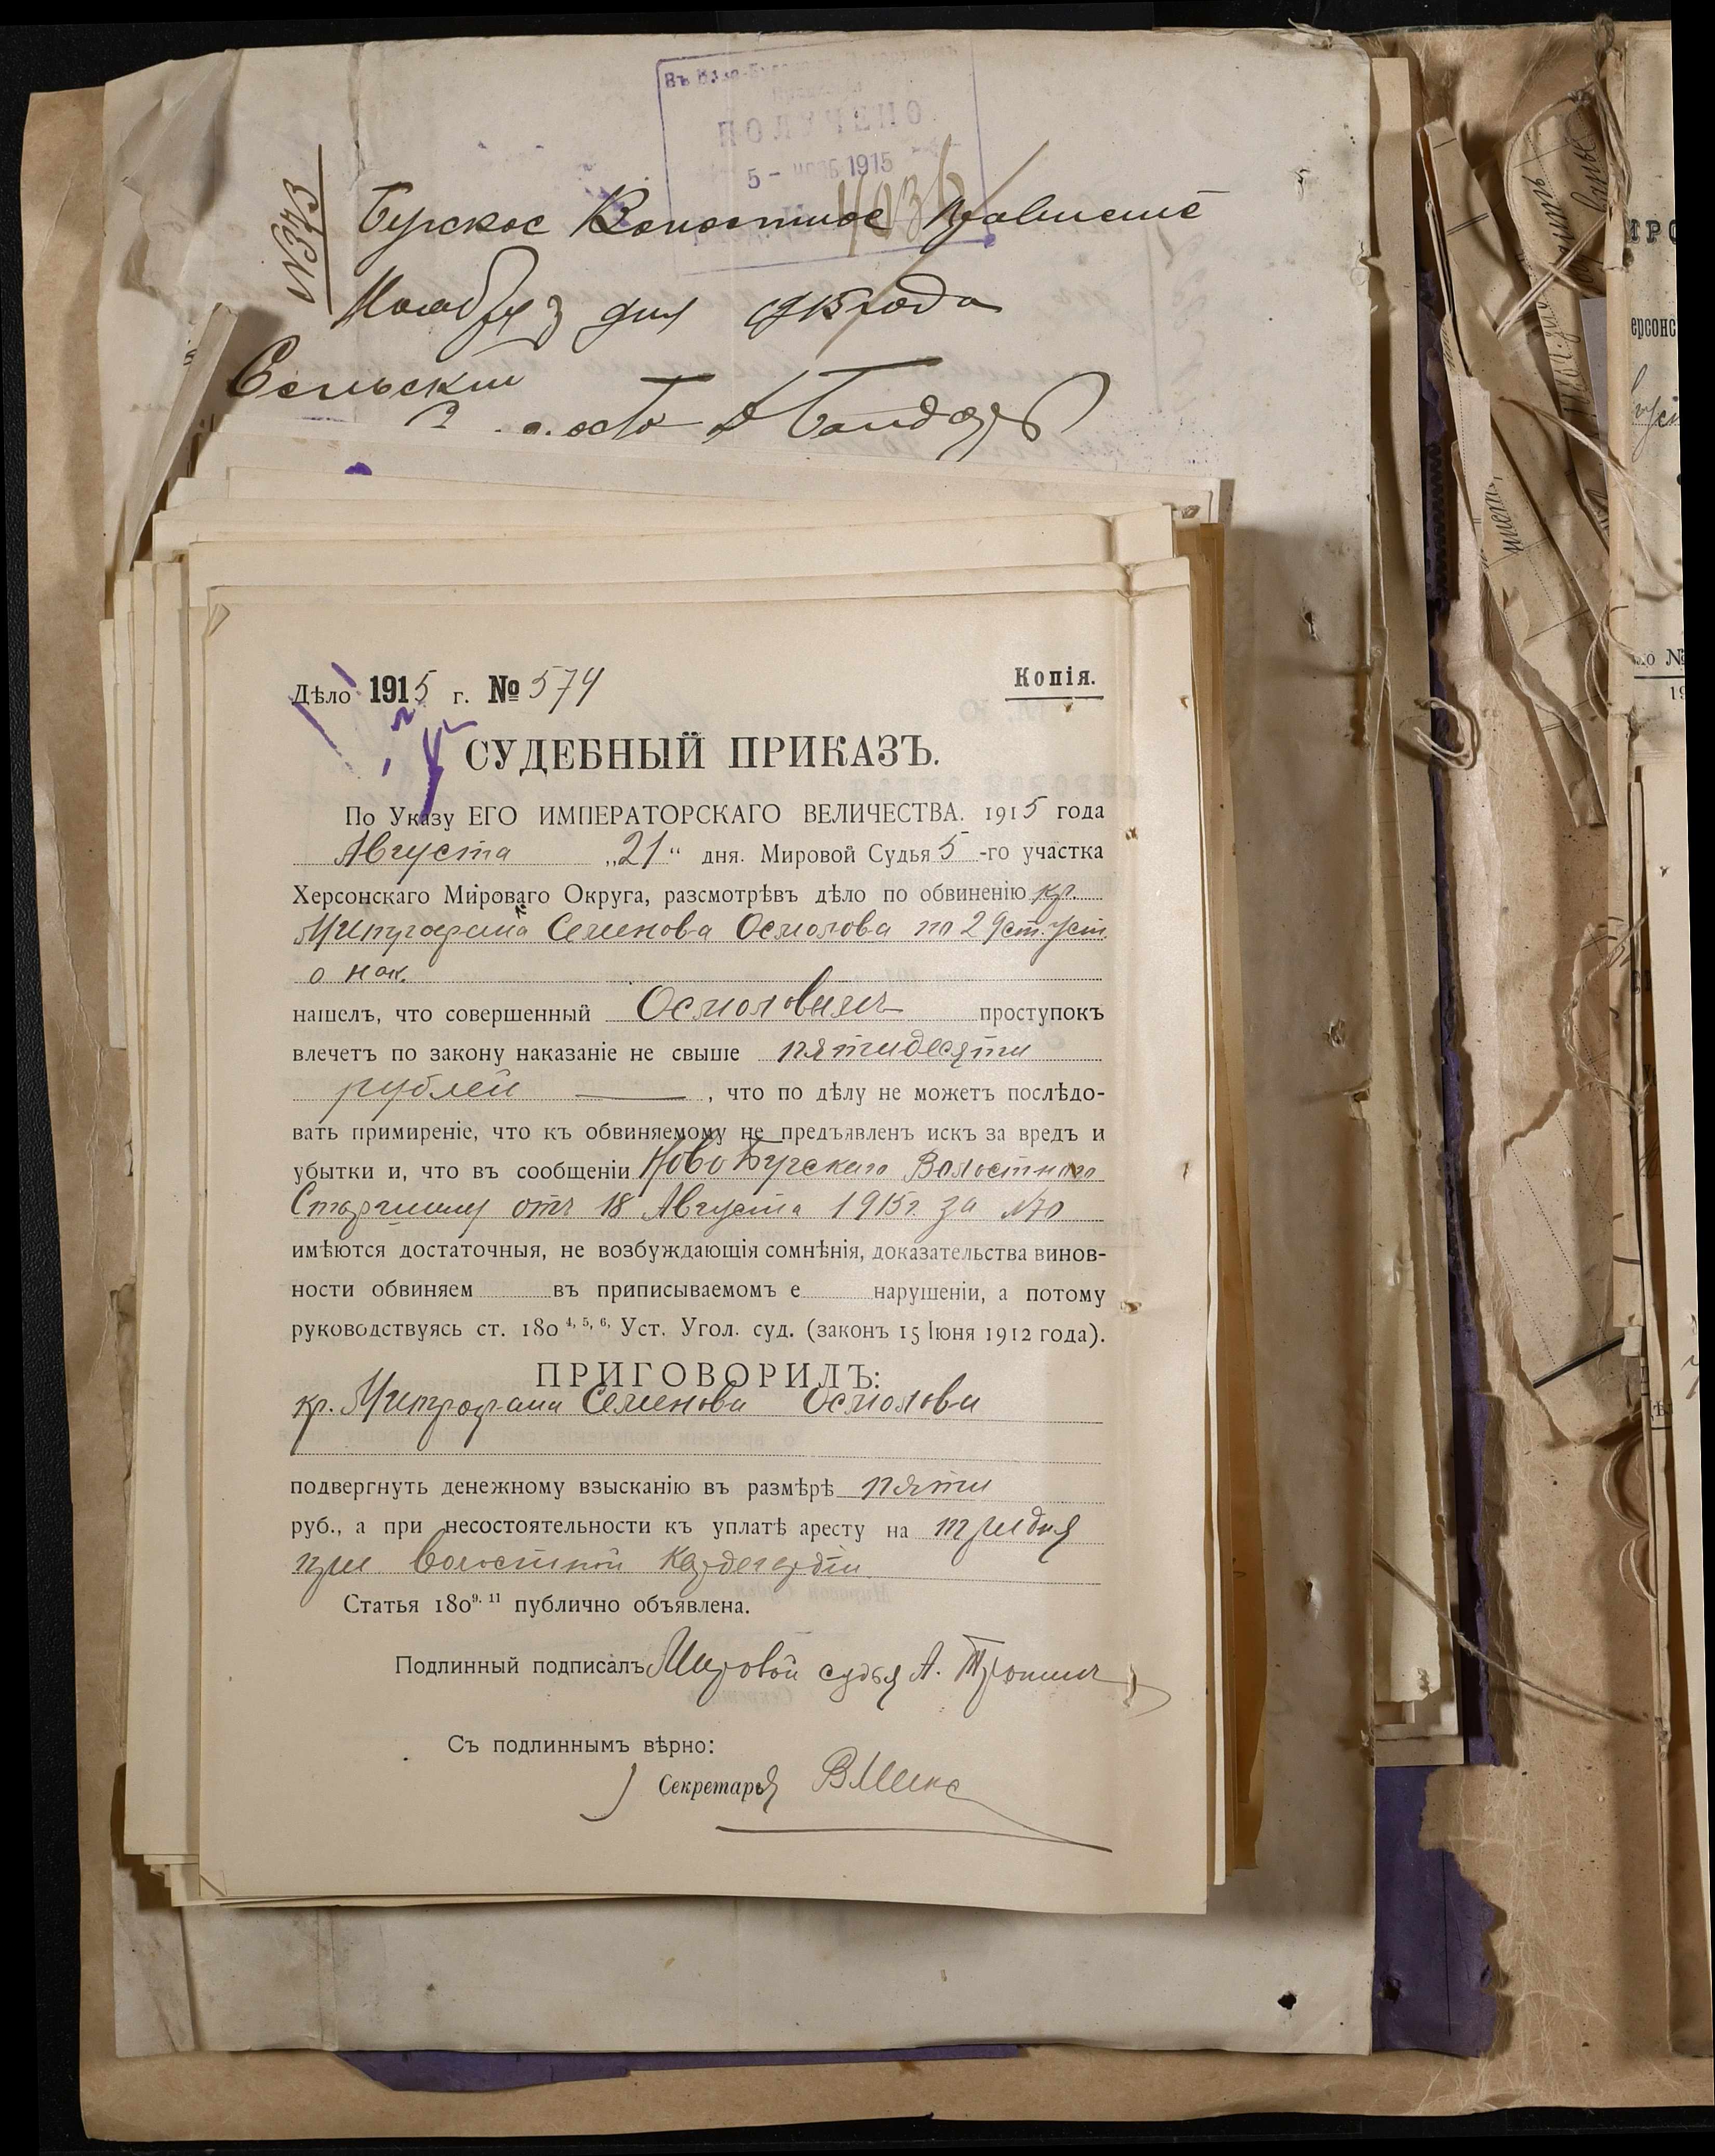 ПОЛУЧЕНО
5 - нояб 1915
№373
Бугское Волостное Правленіе
Ноября 3 дня 1915 года
Сельскій
Дѣло 1915 г. № 574
Копія.
СУДЕБНЫЙ ПРИКАЗЪ.
По Указу ЕГО ИМПЕРАТОРСКАГО ВЕЛИЧЕСТВА. 1915 года
Августа „21“ дня. Мировой Судья 5-го участка
Херсонскаго Мироваго Округа, разсмотрѣвъ дѣло по обвиненію кр.
Митрофана Семенова Осмолова по 29 ст. Уст.
о нак.
нашелъ, что совершенный Осмоловымъ проступокъ
влечетъ по закону наказаніе не свыше пятидесяти
рублей , что по дѣлу не можетъ послѣдо-
вать примиреніе, что къ обвиняемому не предъявленъ искъ за вредъ и
убытки и, что въ сообщеніи Ново Бугскаго Волостного
Старшины отъ 18 Августа 1915 г. за №70
имѣются достаточныя, не возбуждающія сомнѣнія, доказательства винов-
ности обвиняем въ приписываемомъ е нарушеніи, а потому
руководствуясь ст. 180 4, 5, 6, Уст. Угол. суд. (законъ 15 Іюня 1912 года).
ПРИГОВОРИЛЪ:
кр. Митрофана Семенова Осмолова
подвергнуть денежному взысканію въ размѣрѣ пяти
руб., а при несостоятельности къ уплатѣ аресту на три дня
при волостной кордегардіи.
Статья 180 9, 11 публично объявлена.
Подлинный подписалъ Мировой судья А. Трошинъ
Съ подлиннымъ вѣрно:
Секретарь